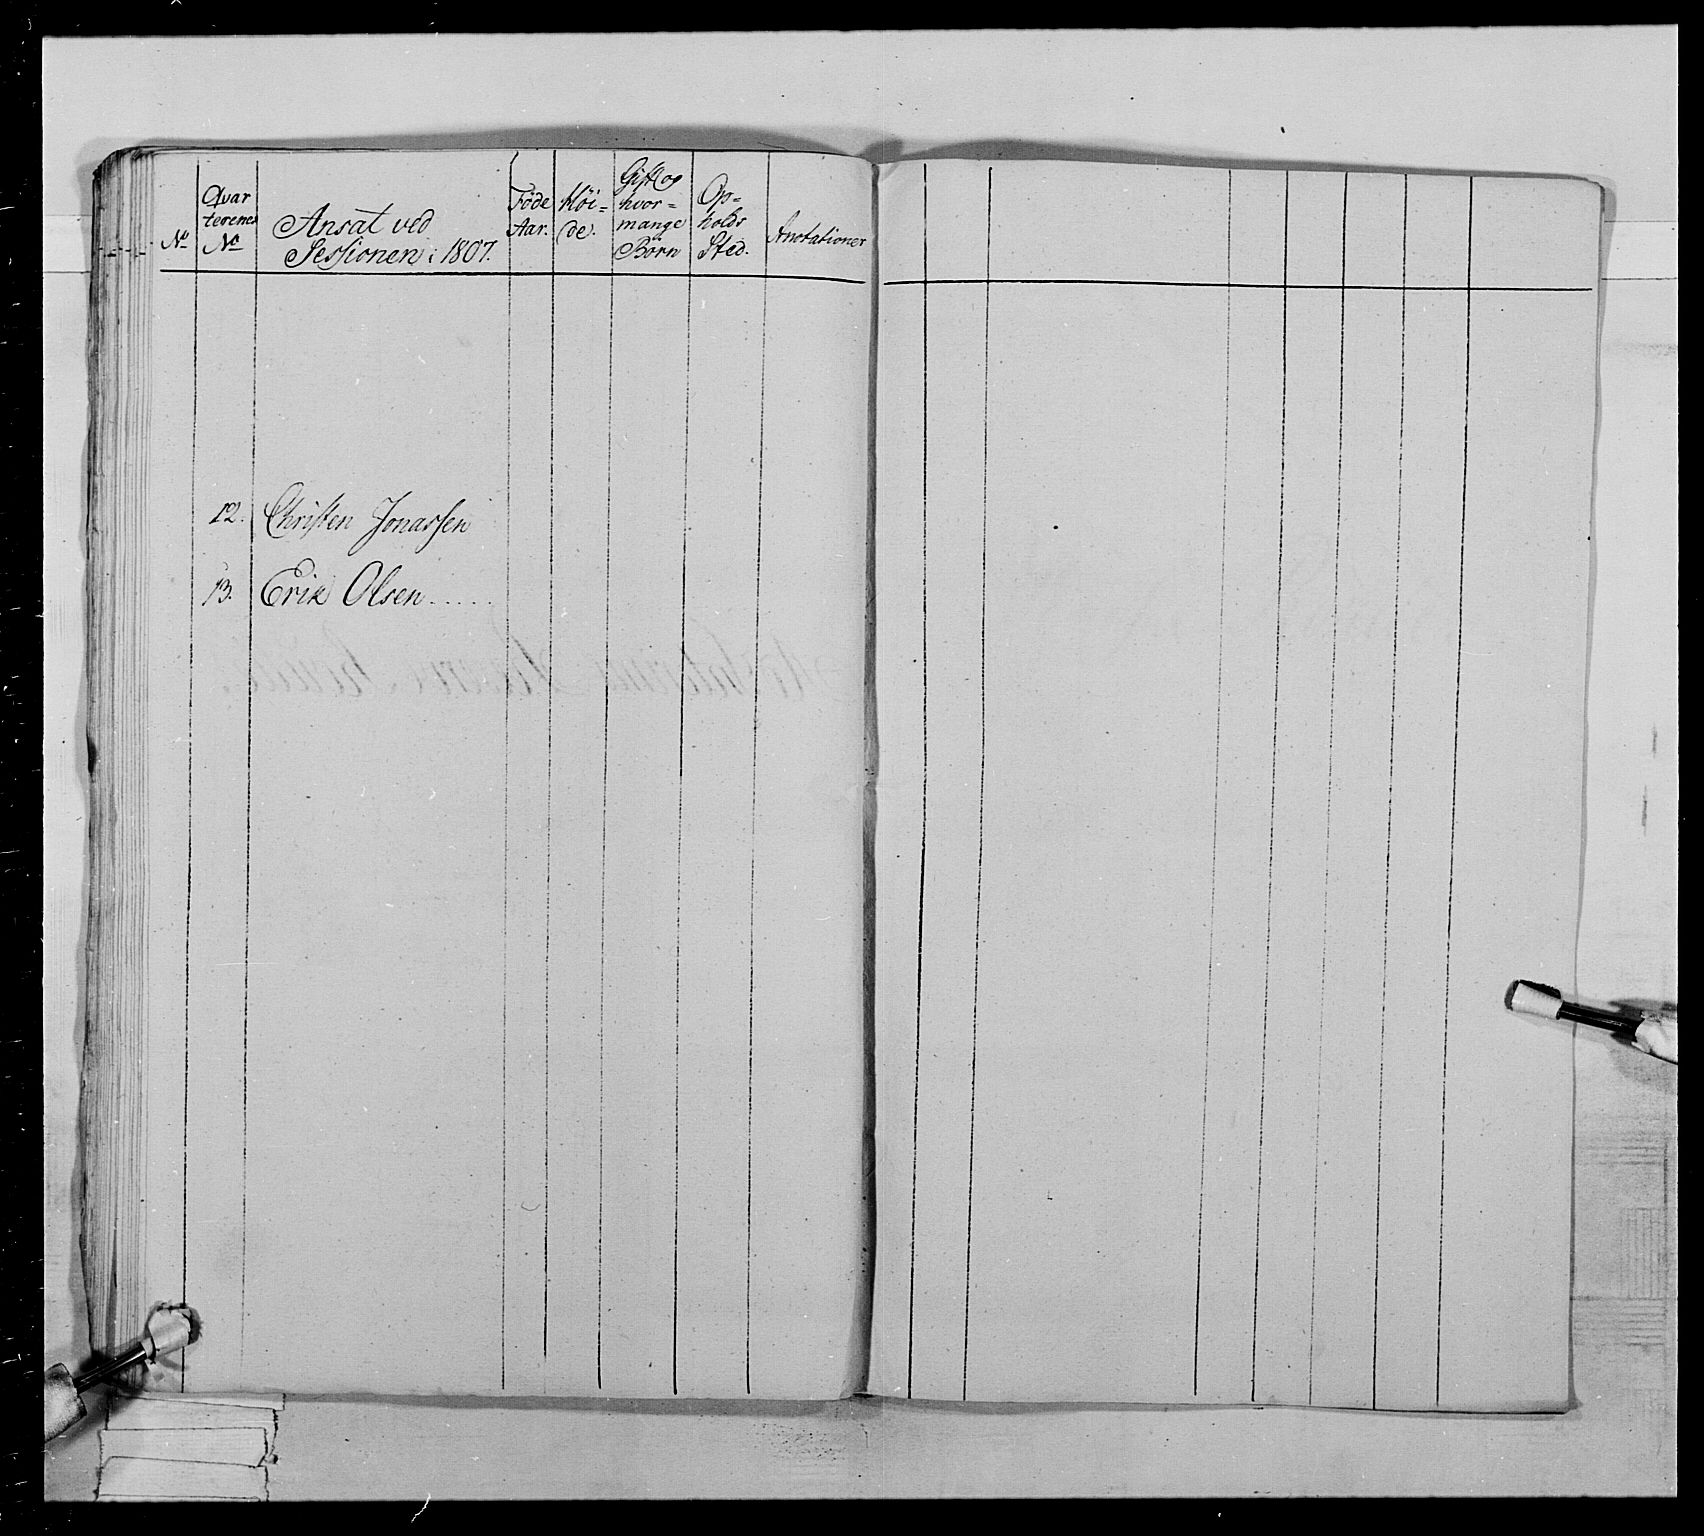 No
Qvar
terenes
No
Ansat ved
Sessionen i 1807.
Føde
Aar.
Høi=
de.
Gift og
hvor=
mange
Børn
Op=
holds
Sted.
Anotationer
12. Christen Jonassen
13. Erik Olsen .....